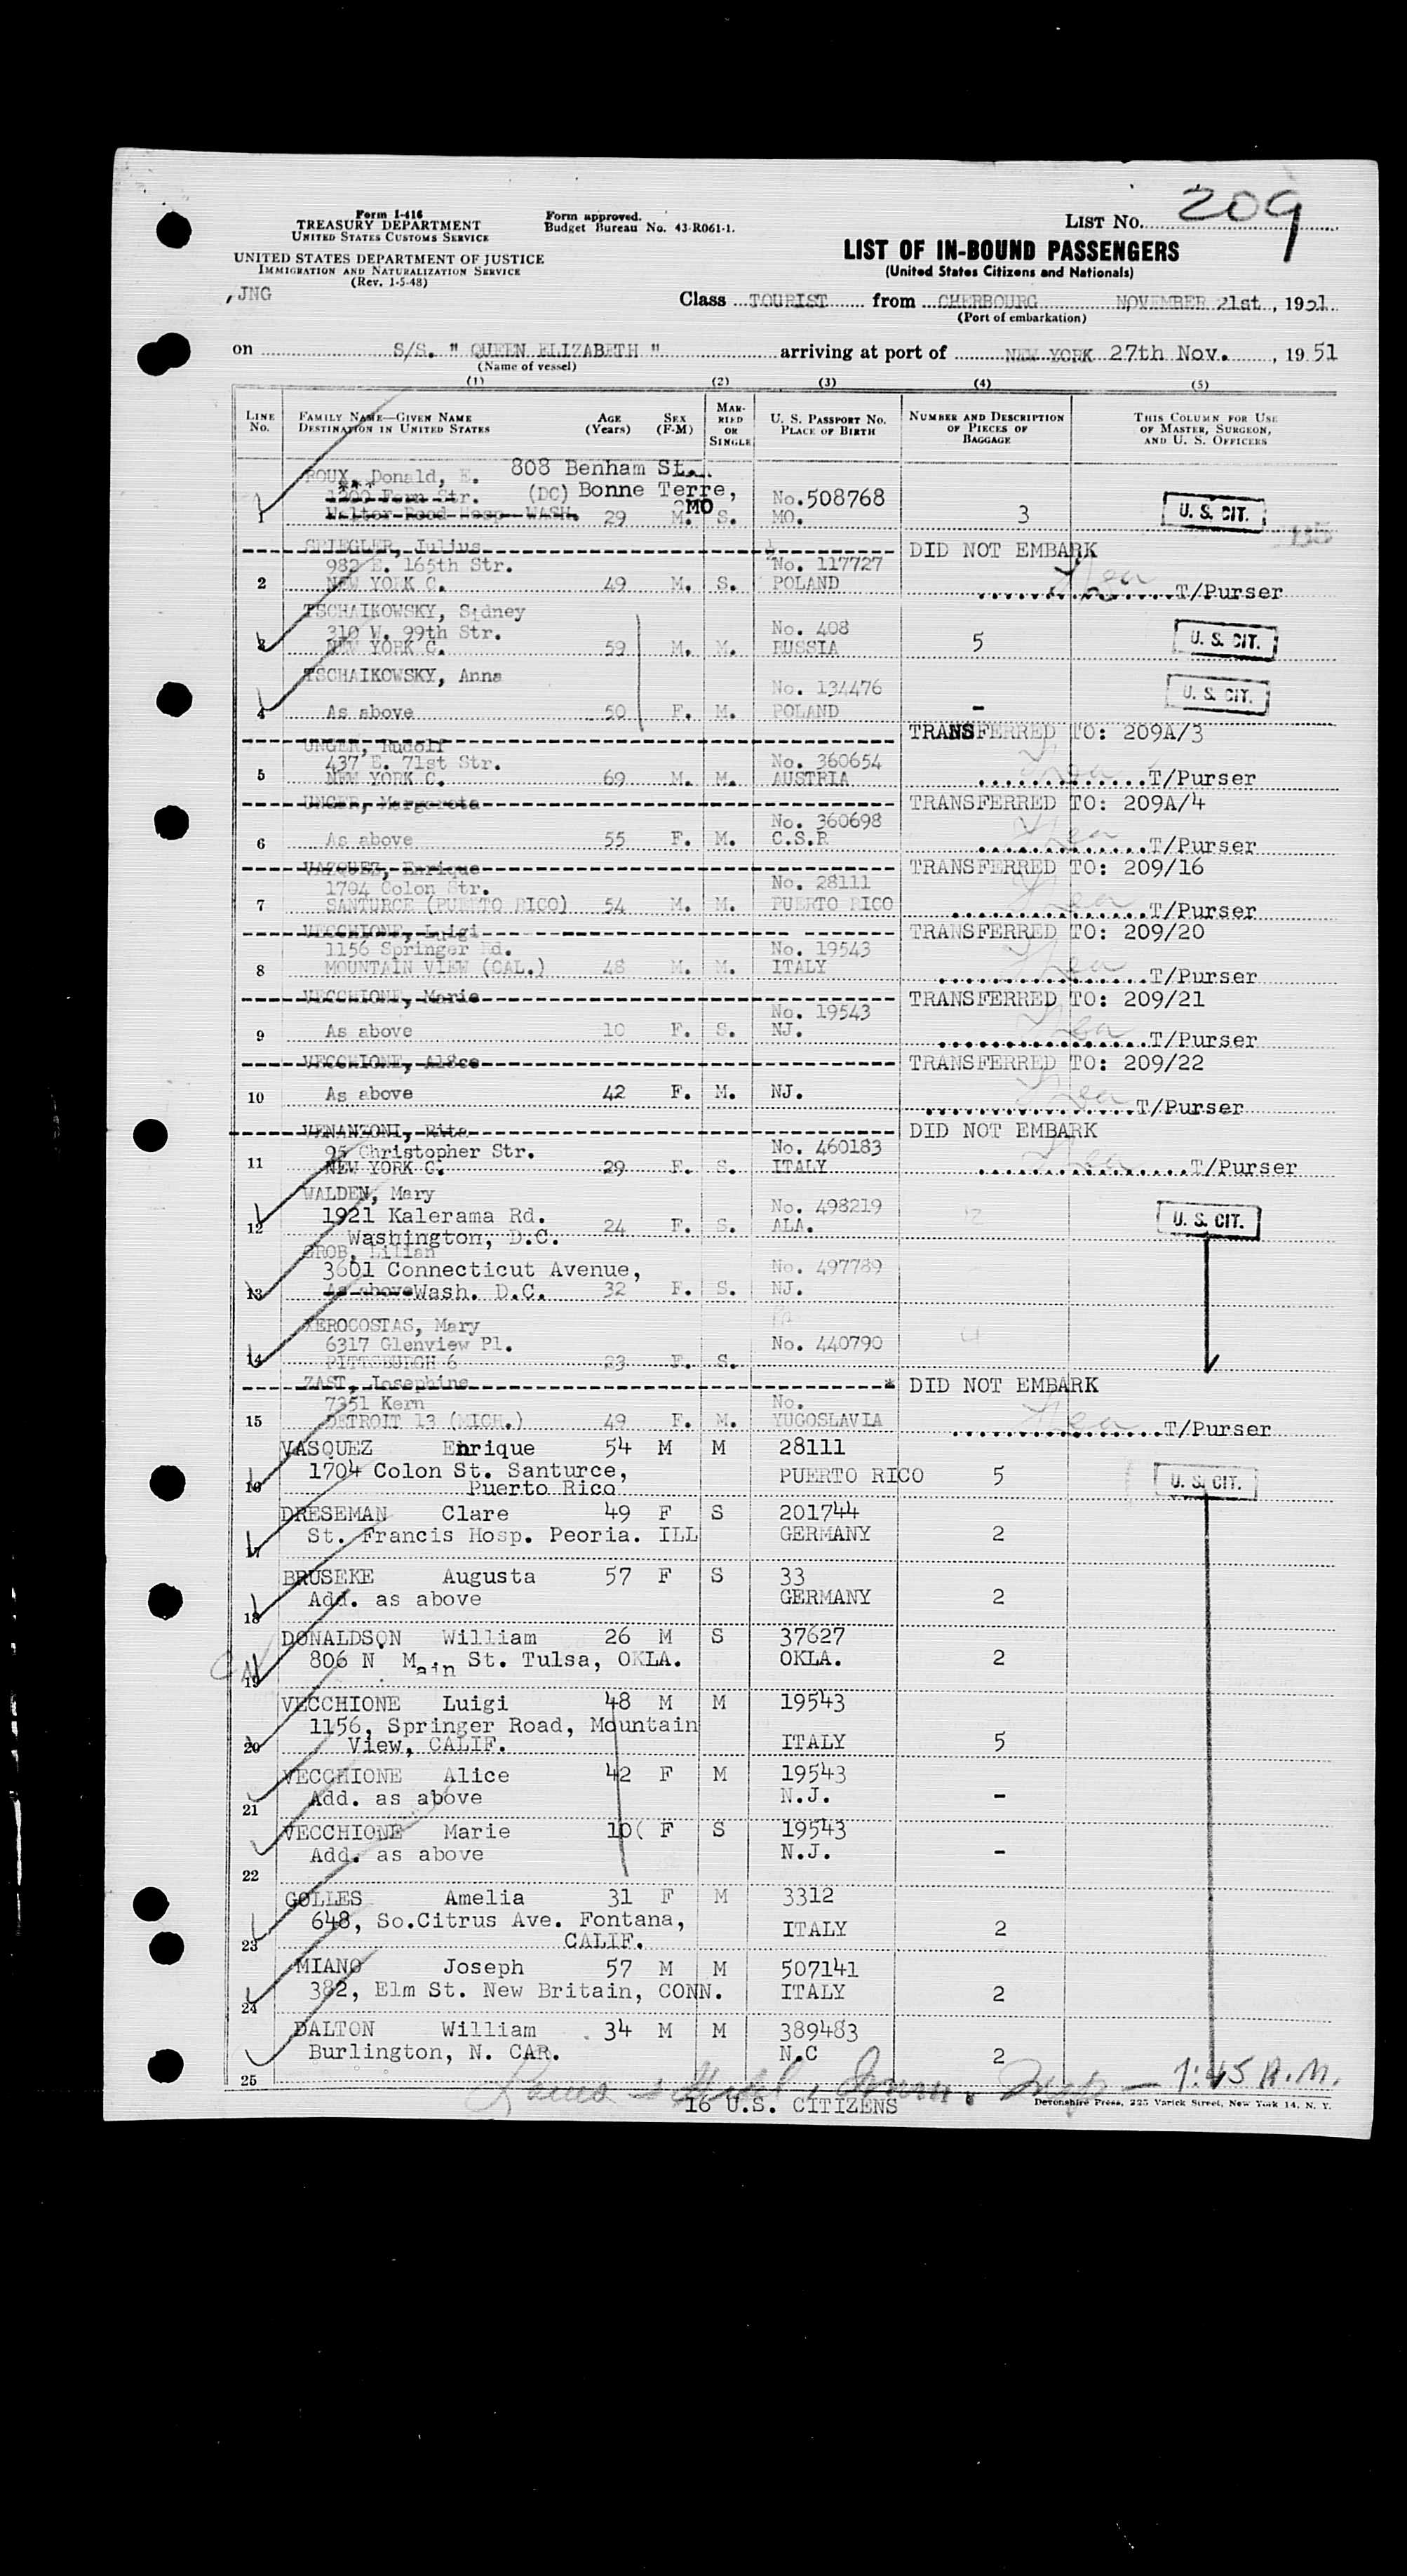 Form I-416
TREASURY DEPARTMENT
UNITED STATES CUSTOMS SERVICE
UNITED STATES DEPARTMENT OF JUSTICE
IMMIGRATION AND NATURALIZATION SERVICE
(Rev. 1-5-48)
Form approved.
Budget Bureau No. 43-R061-1.
LIST NO. 209
LIST OF IN-BOUND PASSENGERS
(United States Citizens and Nationals)
,JNG
Class TOURIST from CHERBOURG NOVEMBER 21st, 1951
(Port of embarkation)
on S/S. " QUEEN ELIZABETH " arriving at port of NEW YORK 27th Nov., 19 51
(Name of vessel)
(1) (2) (3) (4) (5)
LINE NO. FAMILY NAME—GIVEN NAME DESTINATION IN UNITED STATES AGE (Years) SEX (F-M) MARRIED OR SINGLE U. S. PASSPORT NO. PLACE OF BIRTH NUMBER AND DESCRIPTION OF PIECES OF BAGGAGE THIS COLUMN FOR USE OF MASTER, SURGEON, AND U. S. OFFICERS
ROUX, Donald, E. 808 Benham St.
1200 Fern Str. (DC) Bonne Terre, No.508768
1 Walter Reed Hosp WASH. 29 M. MO S. MO. 3 U. S. CIT.
SPIEGLER, Julius DID NOT EMBARK
982 E. 165th Str. No. 117727
2 NEW YORK C. 49 M. S. POLAND T/Purser
TSCHAIKOWSKY, Sidney
310 W. 99th Str. No. 408
3 NEW YORK C. 59 M. M. RUSSIA 5 U. S. CIT.
TSCHAIKOWSKY, Anna
No. 134476 U. S. CIT.
4 As above 50 F. M. POLAND -
UNGER, Rudolf TRANSFERRED TO: 209A/3
437 E. 71st Str. No. 360654
5 NEW YORK C. 69 M. M. AUSTRIA T/Purser
UNGER, Margareta TRANSFERRED TO: 209A/4
No. 360698
6 As above 55 F. M. C.S.R T/Purser
VAZQUEZ, Enrique TRANSFERRED TO: 209/16
1704 Colon Str. No. 28111
7 SANTURCE (PUERTO RICO) 54 M. M. PUERTO RICO T/Purser
VECCHIONE, Luigi TRANSFERRED TO: 209/20
1156 Springer Rd. No. 19543
8 MOUNTAIN VIEW (CAL.) 48 M. M. ITALY T/Purser
VECCHIONE, Marie TRANSFERRED TO: 209/21
No. 19543
9 As above 10 F. S. NJ. T/Purser
VECCHIONE, Alice TRANSFERRED TO: 209/22
10 As above 42 F. M. NJ. T/Purser
VENANZONI, Rita DID NOT EMBARK
95 Christopher Str. No. 460183
11 NEW YORK C. 29 F. S. ITALY T/Purser
WALDEN, Mary
1921 Kalerama Rd. No. 498219
12 Washington, D.C. 24 F. S. ALA. U. S. CIT.
GROB, Lilian
3601 Connecticut Avenue, No. 497789
13 As above Wash. D.C. 32 F. S. NJ.
XEROCOSTAS, Mary
6317 Glenview Pl. No. 440790
14 PITTSBURGH 6 23 F. S. 4
ZAST, Josephine * DID NOT EMBARK
7351 Kern No.
15 DETROIT 13 (MICH.) 49 F. M. YUGOSLAVIA T/Purser
VASQUEZ Enrique 54 M M 28111
1704 Colon St. Santurce, PUERTO RICO 5 U. S. CIT.
16 Puerto Rico
DRESEMAN Clare 49 F S 201744
St. Francis Hosp. Peoria. ILL GERMANY 2
17
BRUSEKE Augusta 57 F S 33
Add. as above GERMANY 2
18
DONALDSON William 26 M S 37627
806 N Main St. Tulsa, OKLA. OKLA. 2
19
VECCHIONE Luigi 48 M M 19543
1156, Springer Road, Mountain
20 View, CALIF. ITALY 5
VECCHIONE Alice 42 F M 19543
Add. as above N.J. -
21
VECCHIONE Marie 10( F S 19543
Add. as above N.J. -
22
GOLLES Amelia 31 F M 3312
648, So.Citrus Ave. Fontana, ITALY 2
23 CALIF.
MIANO Joseph 57 M M 507141
382, Elm St. New Britain, CONN. ITALY 2
24
DALTON William 34 M M 389483
Burlington, N. CAR. N.C 2
25
1:45 A.M.
16 U.S. CITIZENS
Devonshire Press, 225 Varick Street, New York 14, N. Y.